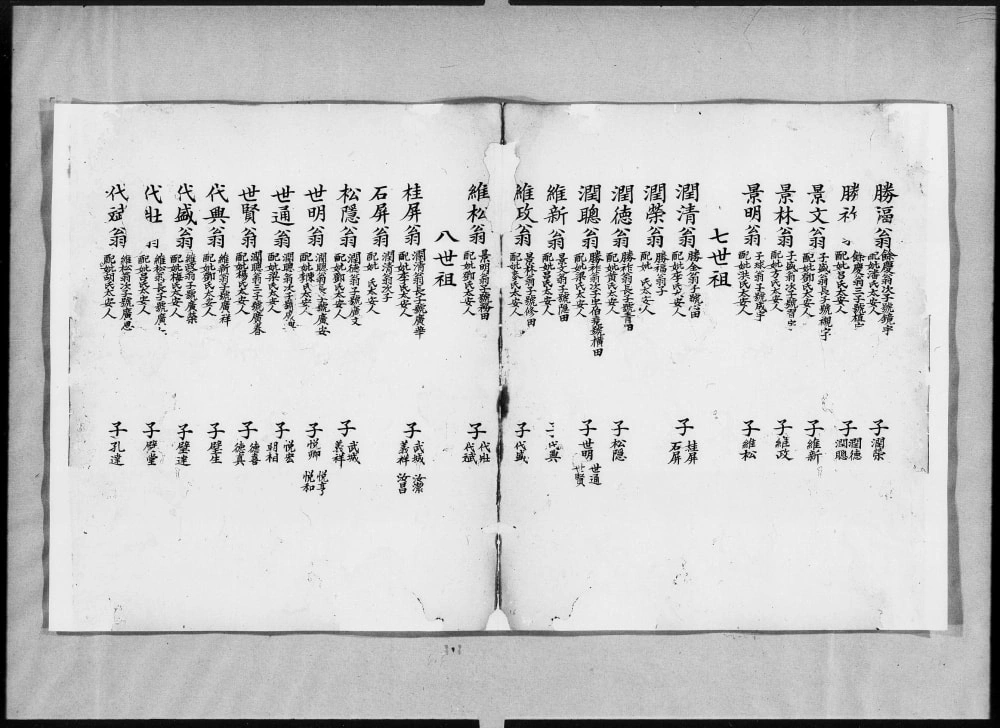 勝福翁 餘慶翁次子號鏡宇 配妣潘氏太安人 子 潤榮
勝 餘慶翁三子號植 配妣呂氏太安人 子 潤德 潤聰
景文翁 子盛翁長子號襯宇 配妣鄧氏太安人 子 維新
景林翁 子盛翁次子號習 配妣方氏太安人 子 維政
景明翁 子球翁子號成宇 配妣洪氏太安人 子 維松
七世祖
潤清翁 勝金翁子號 田 配妣李氏太安人 子 桂屏 石屏
潤榮翁 勝福翁子 配妣 氏太安人
潤德翁 勝祚翁長子號 配妣黃氏太安人 子 松隱
潤聰翁 勝祚翁次子 號橫田 配妣梁氏太安人 子 世明 世通 世賢
維新翁 景文翁子號隱田 配妣呂氏太安人 代興
維政翁 景林翁子號修田 配妣 氏太安人 子 代盛
維松翁 景明翁子號 田 配妣鄭氏太安人 子 代壯 代斌
八世祖
桂屏翁 潤清翁長子號廣華 配妣李氏太安人 子 武城 汝潔 義祥 汝昌
石屏翁 潤清翁次子 配妣 氏太安人
松隱翁 潤德翁子號廣文 配妣鄭氏太安人 子 武城 義祥
世明翁 潤聰翁長子號廣安 配妣陳氏太安人 子 悅卿 悅亨 悅和
世通翁 潤聰翁次子號 配妣梁氏太安人 子 悅宏 朝相
世賢翁 潤聰翁三子號廣春 配妣楊氏太安人 子 德喜 德真
代興翁 維新翁子號廣祥 配妣鄭氏太安人 子 璧生
代盛翁 維政翁子號廣榮 配妣 氏太安人 子 璧達
代壯 維松翁長子號廣 配妣呂氏太安人 子 璧堂
代斌翁 維松翁次子號廣恩 配妣胡氏太安人 子 孔達